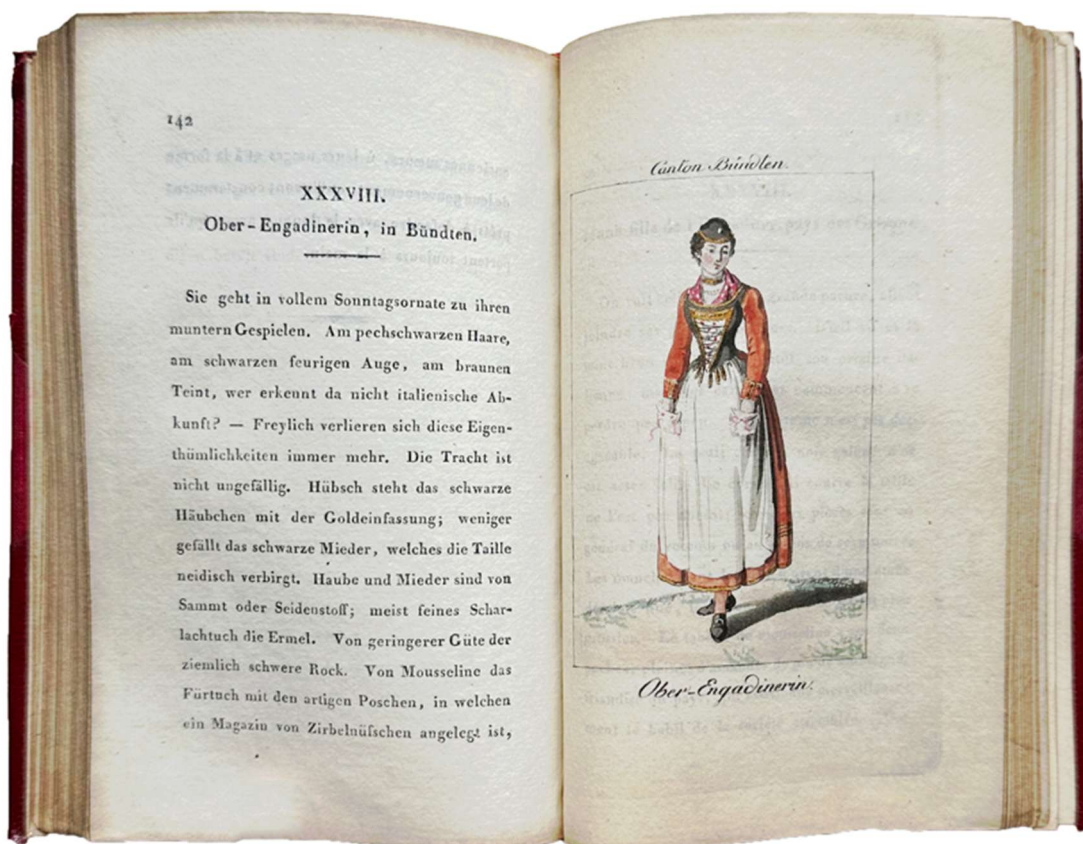 142
XXXVIII.
Ober-Engadinerin, in Bündten.
Sie geht in vollem Sonntagsornate zu ihren
muntern Gespielen. Am pechschwarzen Haare,
am schwarzen feurigen Auge, am braunen
Teint, wer erkennt da nicht italienische Ab-
kunft? — Freylich verlieren sich diese Eigen-
thümlichkeiten immer mehr. Die Tracht ist
nicht ungefällig. Hübsch steht das schwarze
Häubchen mit der Goldeinfassung; weniger
gefällt das schwarze Mieder, welches die Taille
neidisch verbirgt. Haube und Mieder sind von
Sammt oder Seidenstoff; meist feines Schar-
lachtuch die Ermel. Von geringerer Güte der
ziemlich schwere Rock. Von Mousseline das
Fürtuch mit den artigen Poschen, in welchen
ein Magazin von Zirbelnüfschen angelegt ist,
Canton Bündten.
Ober-Engadinerin.